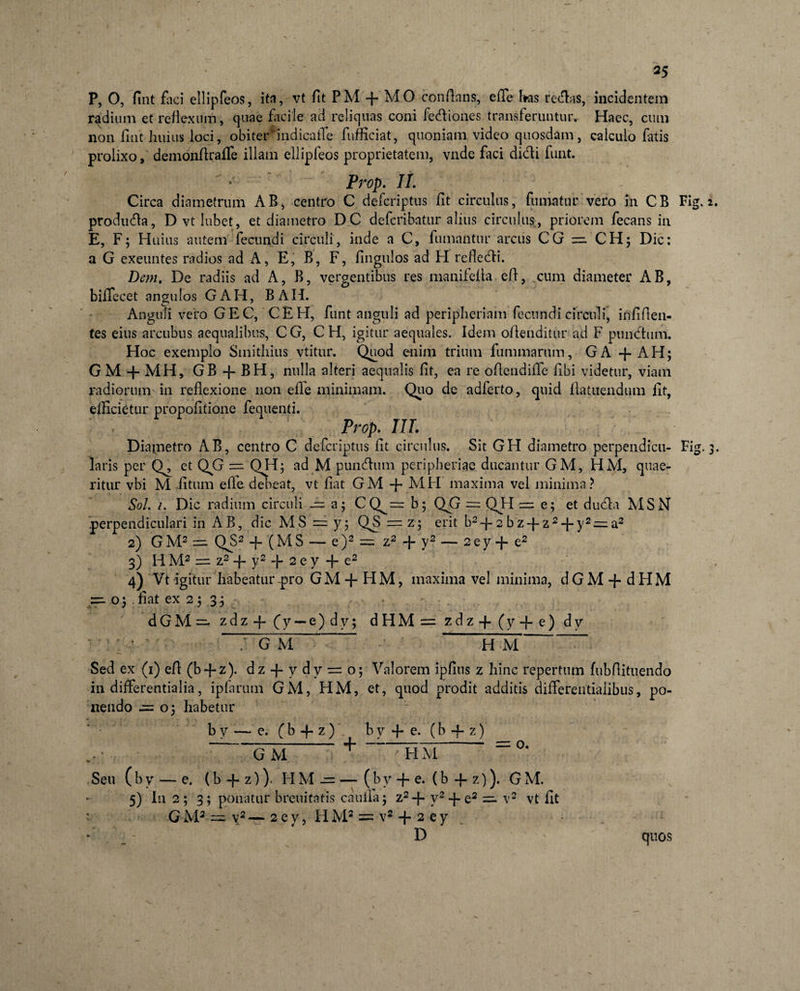 25
P, O, ſint faci ellipſeos, ita, vt ſit PM + MO conſtans, eſſe has rectas, incidentem
radium et reflexum, quae facile ad reliquas coni ſectiones transferuntur. Haec, cum
non ſint huius loci, obiter indicaſſe ſufficiat, quoniam video quosdam, calculo ſatis
prolixo, demonſtraſſe illam ellipſeos proprietatem, vnde faci dicti ſunt.
Prop. II.
Circa diametrum AB, centro C deſcriptus ſit circulus, ſumatur vero in CB Fig. 2.
producta, D vt lubet, et diametro DC deſcribatur alius circulus, priorem ſecans in
E, F; Huius autem ſecundi circuli, inde a C, ſumantur arcus CG = CH; Dic:
a G exeuntes radios ad A, E, B, F, ſingulos ad H reflecti.
Dem. De radiis ad A, B, vergentibus res manifeſta eſt, cum diameter AB,
biſſecet angulos GAH, BAH.
Anguli vero GEC, CEH, ſunt anguli ad peripheriam ſecundi circuli, inſiſten-
tes eius arcubus aequalibus, CG, CH, igitur aequales. Idem oſtenditur ad F punctum.
Hoc exemplo Smithius vtitur. Quod enim trium ſummarum, GA + AH;
GM + MH, GB + BH, nulla alteri aequalis ſit, ea re oſtendiſſe ſibi videtur, viam
radiorum in reflexione non eſſe minimam. Quo de adſerto, quid ſtatuendum ſit,
efficietur propoſitione ſequenti.
Prop. III.
Diametro AB, centro C deſcriptus ſit circulus. Sit GH diametro perpendicu- Fig. 3.
laris per Q, et QG = QH; ad M punctum peripheriae ducantur GM, HM, quae-
ritur vbi M ſitum eſſe debeat, vt fiat GM + MH maxima vel minima?
Sol. 1. Dic radium circuli = a; CQ = b; QG = QH = e; et ducta MSN
perpendiculari in AB, dic MS = y; QS = z; erit b² + 2bz + z² + y² = a²
2) GM² = QS² + (MS — e)² = z² + y² — 2ey + e²
3) HM² = z² + y² + 2ey + e²
4) Vt igitur habeatur pro GM + HM, maxima vel minima, dGM + dHM
= 0; fiat ex 2; 3;
dGM = zdz + (y—e) dy; dHM = zdz + (y + e) dy
GM HM
Sed ex (1) eſt (b+z). dz + y dy = 0; Valorem ipſius z hinc repertum ſubſtituendo
in differentialia, ipſarum GM, HM, et, quod prodit additis differentialibus, po-
nendo = 0; habetur
by — e. (b + z) + by + e. (b + z) = 0.
GM HM
Seu (by — e. (b + z)). HM = — (by + e. (b + z)). GM.
5) In 2; 3; ponatur breuitatis cauſſa; z² + y² + e² = v² vt ſit
GM² = v² — 2ey, HM² = v² + 2ey
D quos